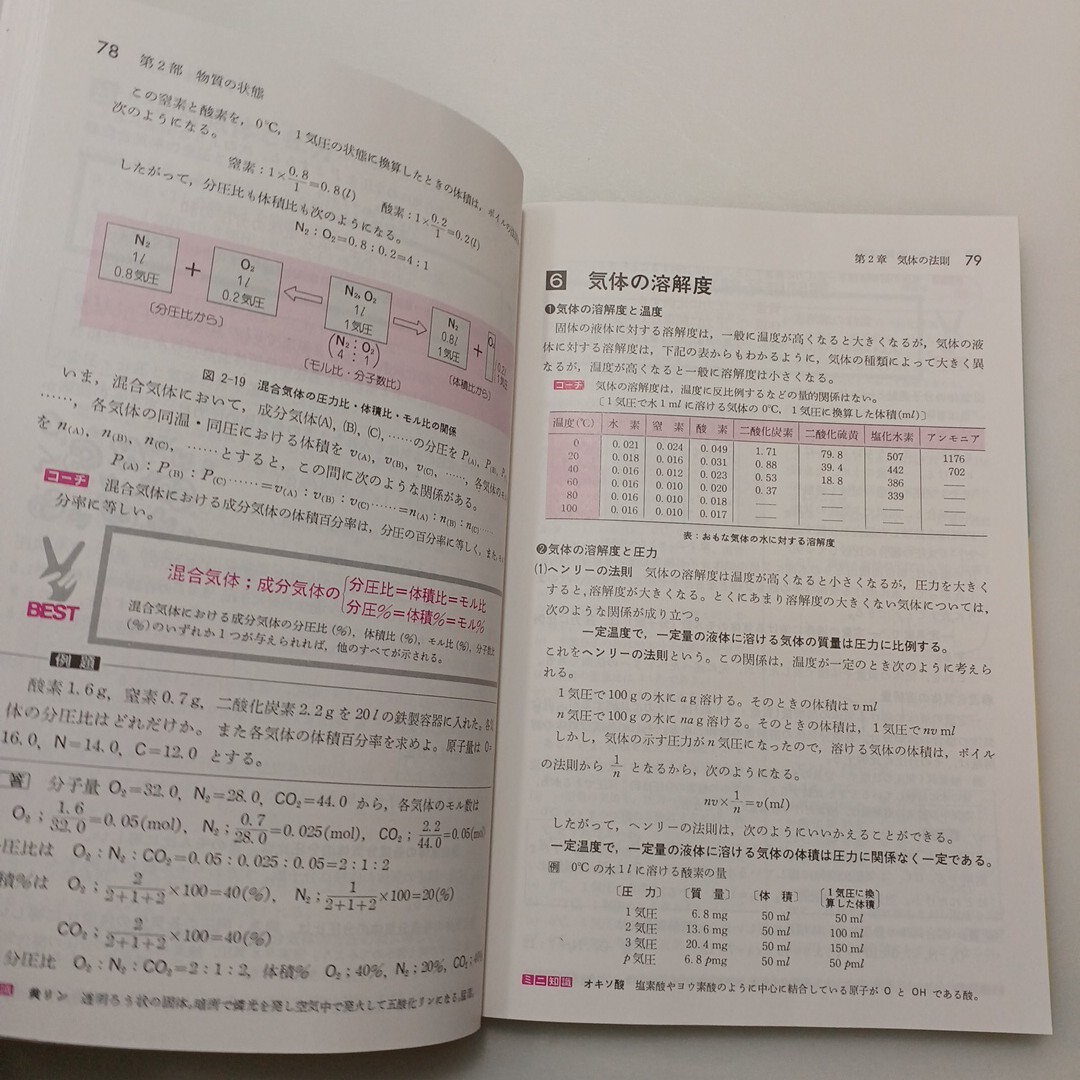 78 第2部 物質の状態
この窒素と酸素を，0℃，1気圧の状態に換算したときの体積は，ボイルの
次のようになる。
窒素：1×0.8/1＝0.8(l) 酸素：1×0.2/1＝0.2(l)
したがって，分圧比も体積比も次のようになる。
N₂：O₂＝0.8：0.2＝4：1
N₂ 1l 0.8気圧 ＋ O₂ 1l 0.2気圧
N₂, O₂ 1l 1気圧
N₂ 0.8l 1気圧 ＋ O₂ 0.2l 1気圧
〔分圧比から〕
(N₂：O₂ 4：1)
〔モル比・分子数比〕
〔体積比から〕
図 2-19 混合気体の圧力比・体積比・モル比の関係
いま，混合気体において，成分気体(A), (B), (C), ……の分圧を P(A), P(B),
……，各気体の同温・同圧における体積を v(A), v(B), v(C), ……，各気体の
を n(A), n(B), n(C), ……とすると，この間に次のような関係がある。
P(A)：P(B)：P(C)……＝v(A)：v(B)：v(C)……＝n(A)：n(B)：n(C)……
コーチ 混合気体における成分気体の体積百分率は，分圧の百分率に等しく，また，
分率に等しい。
BEST
混合気体；成分気体の{分圧比＝体積比＝モル比
分圧％＝体積％＝モル％
混合気体における成分気体の分圧比(％)，体積比(％)，モル比(％)，分子数比
(％)のいずれか1つが与えられれば，他のすべてが示される。
例題
酸素1.6g，窒素0.7g，二酸化炭素2.2gを20lの鉄製容器に入れた。各気
体の分圧比はどれだけか。また各気体の体積百分率を求めよ。原子量は O＝
16.0，N＝14.0，C＝12.0 とする。
答] 分子量 O₂＝32.0，N₂＝28.0，CO₂＝44.0 から，各気体のモル数は
O₂；1.6/32.0＝0.05(mol)，N₂；0.7/28.0＝0.025(mol)，CO₂；2.2/44.0＝0.05(mol)
圧比は O₂：N₂：CO₂＝0.05：0.025：0.05＝2：1：2
積％は O₂；2/2+1+2×100＝40(％)，N₂；1/2+1+2×100＝20(％)
CO₂；2/2+1+2×100＝40(％)
分圧比 O₂：N₂：CO₂＝2：1：2，体積％ O₂；40％，N₂；20％，CO₂；40％
識 黄リン 透明ろう状の固体。暗所で燐光を発し空気中で発火して五酸化リンになる。猛毒。
第2章 気体の法則 79
6 気体の溶解度
❶気体の溶解度と温度
固体の液体に対する溶解度は，一般に温度が高くなると大きくなるが，気体の液
体に対する溶解度は，下記の表からもわかるように，気体の種類によって大きく異
なるが，温度が高くなると一般に溶解度は小さくなる。
コーチ 気体の溶解度は，温度に反比例するなどの量的関係はない。
〔1気圧で水1mlに溶ける気体の0℃，1気圧に換算した体積(ml)〕
温度(℃) 水素 窒素 酸素 二酸化炭素 二酸化硫黄 塩化水素 アンモニア
0 0.021 0.024 0.049 1.71 79.8 507 1176
20 0.018 0.016 0.031 0.88 39.4 442 702
40 0.016 0.012 0.023 0.53 18.8 386 ——
60 0.016 0.010 0.020 0.37 —— 339 ——
80 0.016 0.010 0.018 —— —— —— ——
100 0.016 0.010 0.017 —— —— —— ——
表：おもな気体の水に対する溶解度
❷気体の溶解度と圧力
(1)ヘンリーの法則 気体の溶解度は温度が高くなると小さくなるが，圧力を大きく
すると，溶解度が大きくなる。とくにあまり溶解度の大きくない気体については，
次のような関係が成り立つ。
一定温度で，一定量の液体に溶ける気体の質量は圧力に比例する。
これをヘンリーの法則という。この関係は，温度が一定のとき次のように考えら
れる。
1気圧で100gの水にag溶ける。そのときの体積はvml
n気圧で100gの水にnag溶ける。そのときの体積は，1気圧でnvml
しかし，気体の示す圧力がn気圧になったので，溶ける気体の体積は，ボイル
の法則から 1/n となるから，次のようになる。
nv×1/n＝v(ml)
したがって，ヘンリーの法則は，次のようにいいかえることができる。
一定温度で，一定量の液体に溶ける気体の体積は圧力に関係なく一定である。
例 0℃の水1lに溶ける酸素の量
〔圧力〕 〔質量〕 〔体積〕 〔1気圧に換算した体積〕
1気圧 6.8mg 50ml 50ml
2気圧 13.6mg 50ml 100ml
3気圧 20.4mg 50ml 150ml
p気圧 6.8pmg 50ml 50pml
ミニ知識 オキソ酸 塩素酸やヨウ素酸のように中心に結合している原子が O と OH である酸。